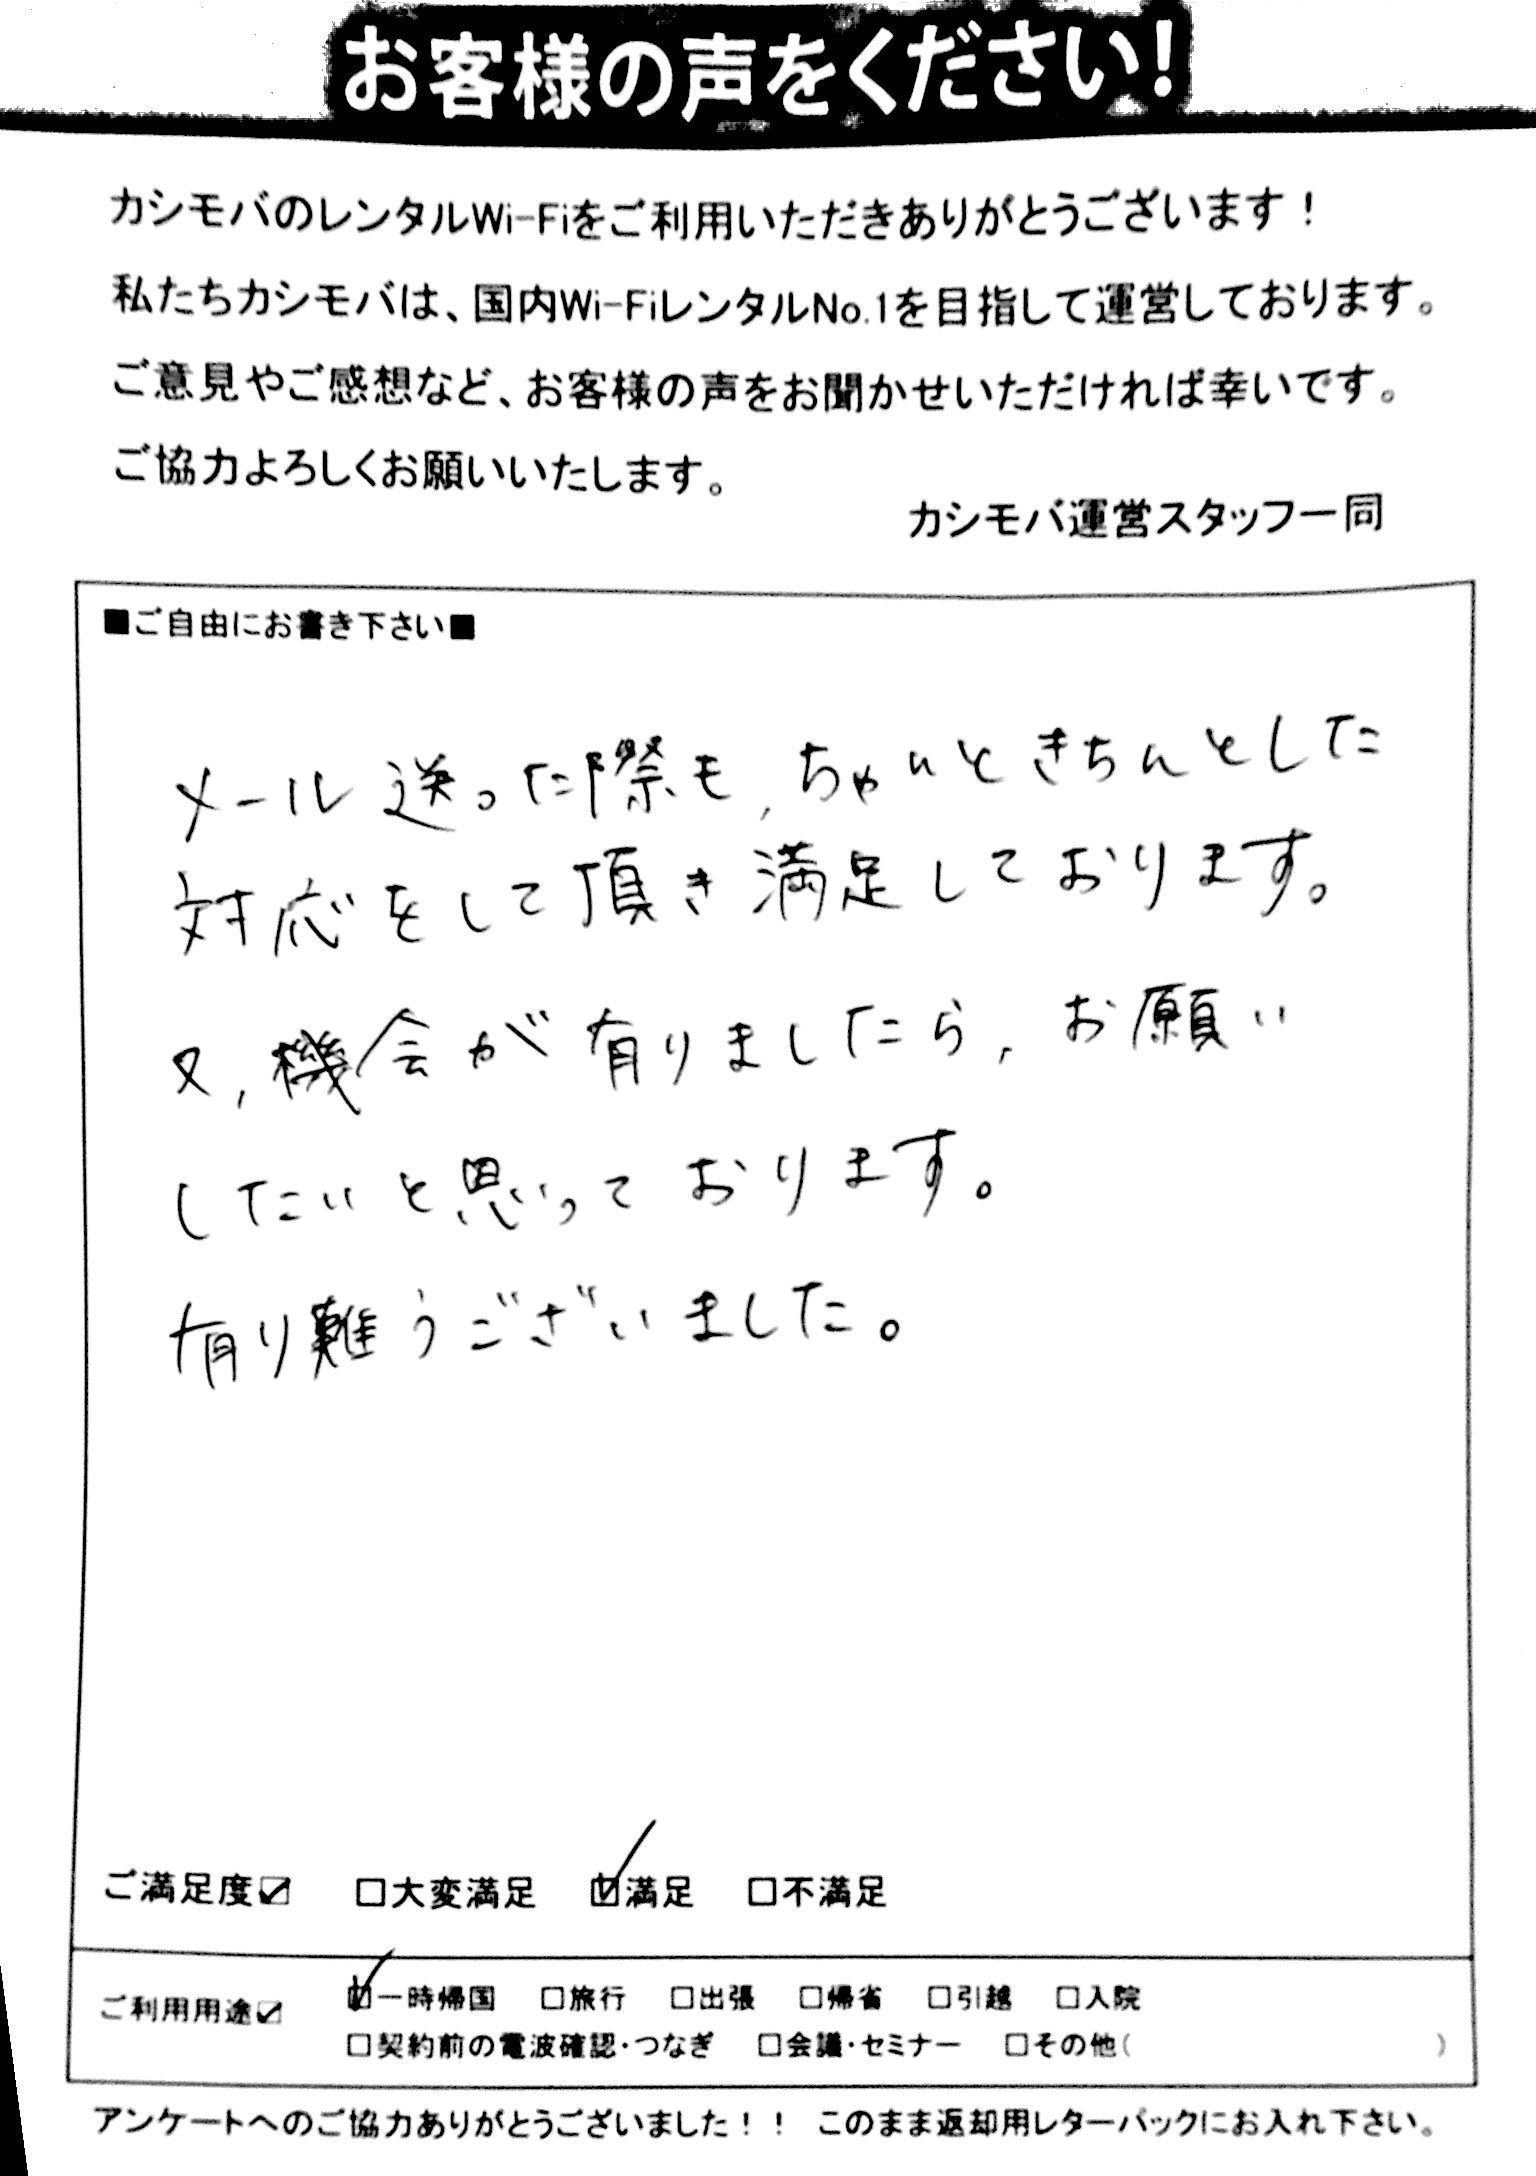 お客様の声をください!
カシモバのレンタルWi-Fiをご利用いただきありがとうございます!
私たちカシモバは、国内Wi-FiレンタルNo.1を目指して運営しております。
ご意見やご感想など、お客様の声をお聞かせいただければ幸いです。
ご協力よろしくお願いいたします。
カシモバ運営スタッフ一同
■ご自由にお書き下さい■
メール送った際も,ちゃんときちんとした
対応をして頂き満足しております。
又,機会が有りましたら,お願い
したいと思っております。
有り難うございました。
ご満足度☑ □大変満足 ☑満足 □不満足
ご利用用途☑ ☑一時帰国 □旅行 □出張 □帰省 □引越 □入院
□契約前の電波確認・つなぎ □会議・セミナー □その他( )
アンケートへのご協力ありがとうございました!! このまま返却用レターパックにお入れ下さい。